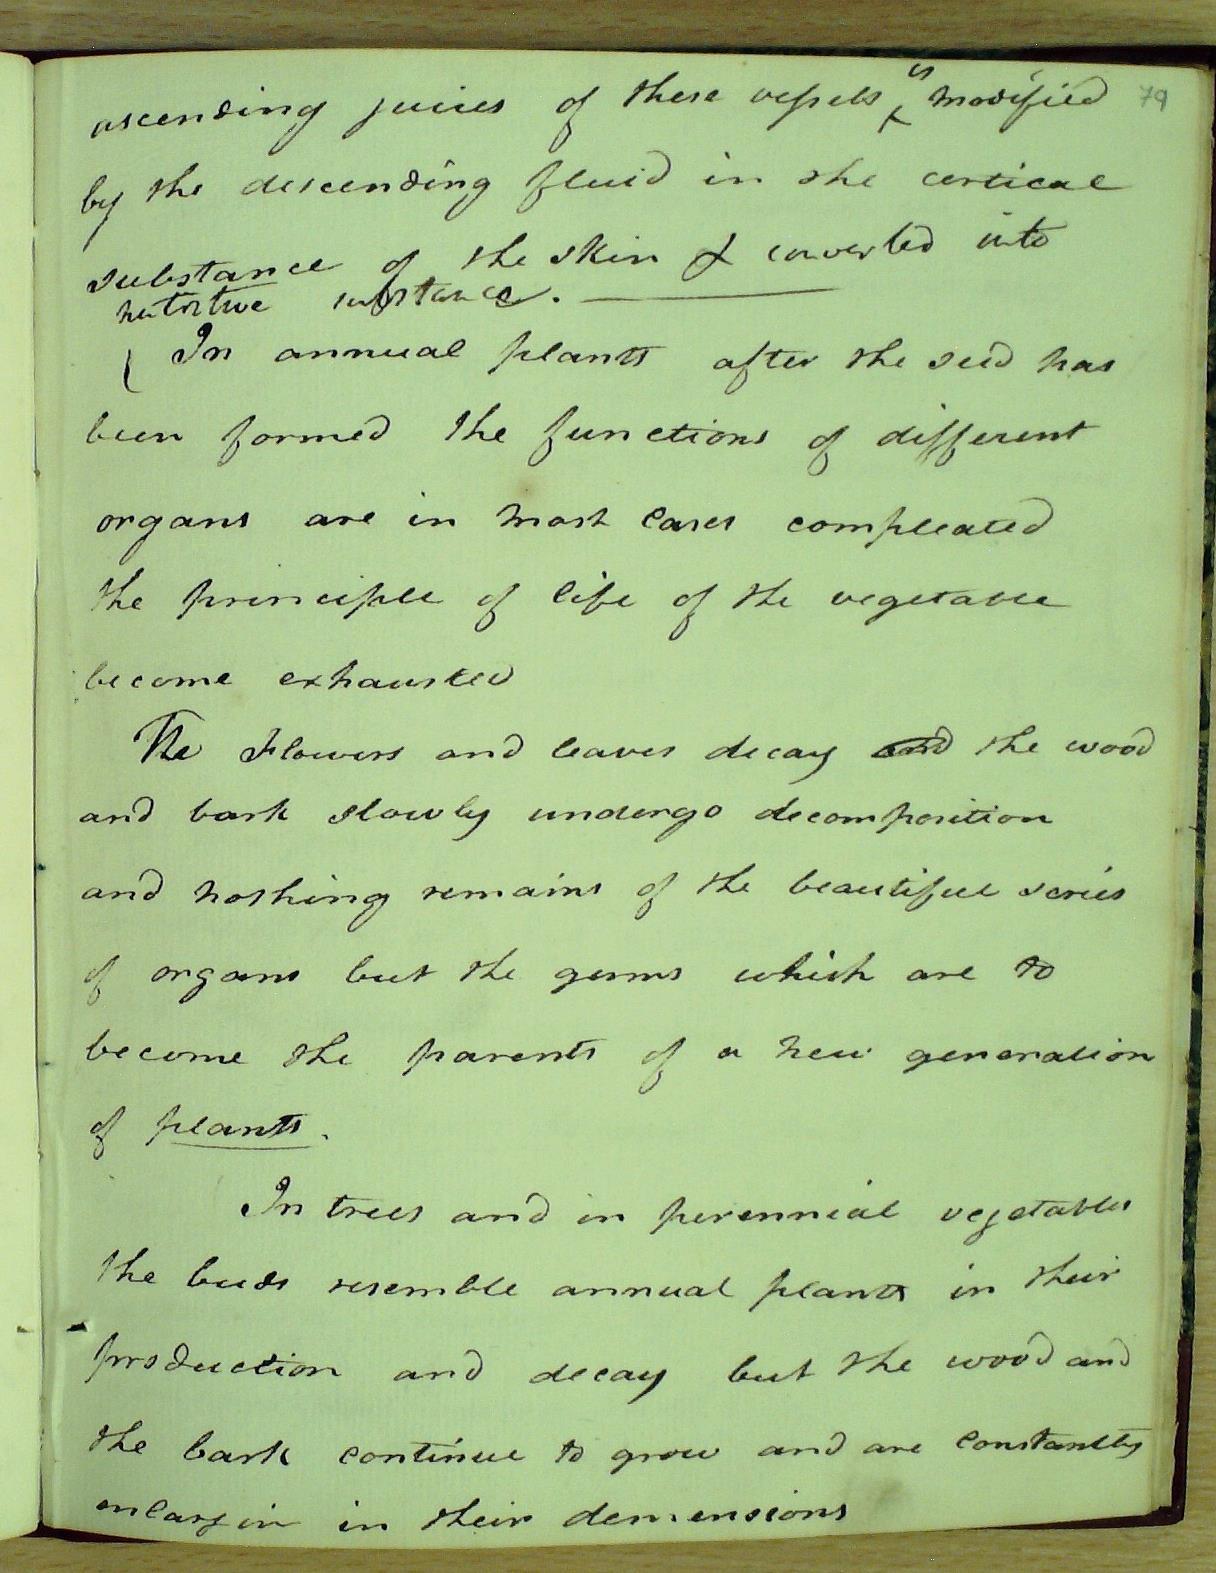 ascending juices of these vessels is modified 79
by the descending fluid in the cortical
substance of the skin & converted into
nutritive substance.
In annual plants after the seed has
been formed the functions of different
organs are in most cases compleated
the principle of life of the vegetable
become exhausted
The Flowers and leaves decay and the wood
and bark slowly undergo decomposition
and nothing remains of the beautiful series
of organs but the germs which are to
become the parents of a new generation
of plants.
In trees and in perennial vegetables
the buds resemble annual plants in their
production and decay but the wood and
the bark continue to grow and are constantly
enlargin in their demensions